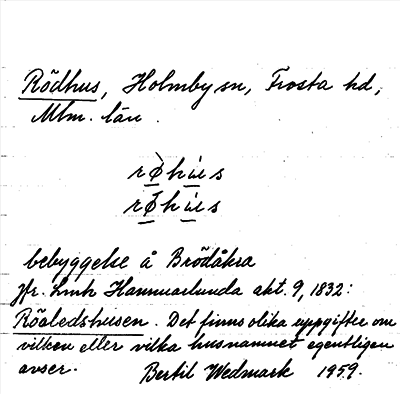 Rödhus, Holmby sn, Frosta hd,
Mlm. län.
rø̀hùs
rǿhùs
bebyggelse å Brödåkra
jfr. Lmk Hammarlunda akt. 9, 1832:
Röaledshusen. Det finns olika uppgifter om
vilken eller vilka husnamnet egentligen
avser. Bertil Wedmark 1959.